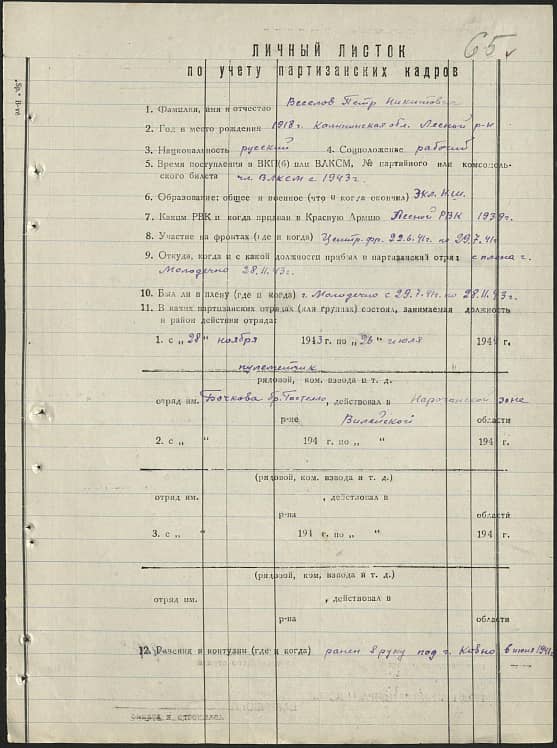 65
ЛИЧНЫЙ ЛИСТОК
по учету партизанских кадров
1. Фамилия, имя и отчество Веселов Петр Никитович
2. Год и место рождения 1918 г. Калининская обл. Лесной р-н
3. Национальность русский 4. Соцположение рабочий
5. Время поступления в ВКП(б) или ВЛКСМ, № партийного или комсомоль-
ского билета чл. ВЛКСМ с 1943 г.
6. Образование: общее и военное (что и когда окончил) 3 кл. Н.Ш.
7. Каким РВК и когда призван в Красную Армию Лесной РВК 1939 г.
8. Участие на фронтах (где и когда) Центр. фр. 22.6.41 г. по 29.7.41 г.
9. Откуда, когда и с какой должности прибыл в партизанский отряд с плена г.
Молодечно 28.11.43 г.
10. Был ли в плену (где и когда) г. Молодечно с 29.7.41 г. по 28.11.43 г.
11. В каких партизанских отрядах (или группах) состоял, занимаемая должность
и район действия отряда:
1. с „ 28 “ ноября 1943 г. по „ 26 “ июля 1944 г.
пулеметчик
рядовой, ком. взвода и т. д.
отряд им. Бочкова бр. Гастелло, действовал в Нарочанской зоне
р-не Вилейской области
2. с „ “ 194 г. по „ “ 194 г.
(рядовой, ком. взвода и т. д.)
отряд им. , действовал в
р-на области
3. с „ “ 194 г. по „ “ 194 г.
(рядовой, ком. взвода и т. д.)
отряд им. , действовал в
р-на области
12. Ранения и контузии (где и когда) ранен в руку под г. Ковно в июне 1941 г.